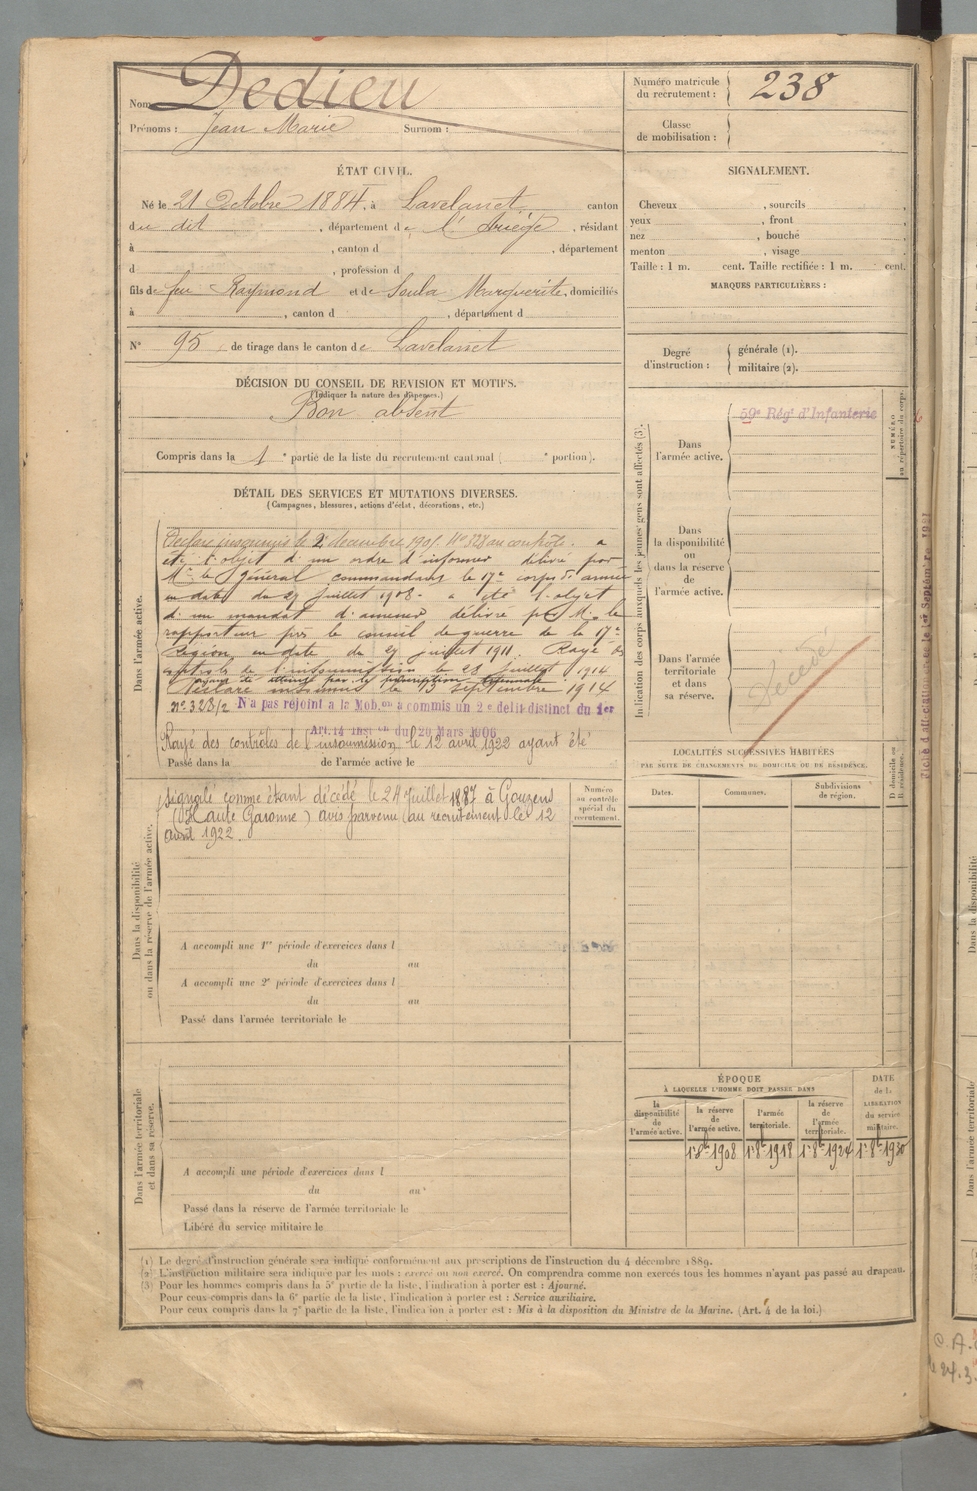 Nom Dedieu
Prénoms : Jean Marie Surnom :
Numéro matricule
du recrutement : 238
Classe
de mobilisation :
ÉTAT CIVIL.
Né le 21 Octobre 1884, à Lavelanet canton
du dit , département de l'Ariège , résidant
à , canton d , département
d , profession d
fils de feu Raymond et de Soula Marguerite, domiciliés
à , canton d , département d
N° 95 , de tirage dans le canton de Lavelanet
SIGNALEMENT.
Cheveux , sourcils ,
yeux , front ,
nez , bouche ,
menton , visage .
Taille : 1 m. cent. Taille rectifiée : 1 m. cent.
MARQUES PARTICULIÈRES :
Degré
d'instruction :
générale (1).
militaire (2).
DÉCISION DU CONSEIL DE REVISION ET MOTIFS.
(Indiquer la nature des dispenses.)
Bon absent
Compris dans la 1 e partie de la liste du recrutement cantonal ( e portion).
DÉTAIL DES SERVICES ET MUTATIONS DIVERSES.
(Campagnes, blessures, actions d'éclat, décorations, etc.)
Dans l'armée active.
Déclaré insoumis le 2 décembre 1905. N° 328 au contrôle. a
été l'objet d'un ordre d'informer délivré par
Mr le Général commandant le 17e corps d'armée
en date du 29 Juillet 1908 - a été l'objet
d'un mandat d'amener délivré par M. le
rapporteur près le conseil de guerre de la 17e
Région, en date du 29 juillet 1911. Rayé des
contrôles de l'insoumission le 28 Juillet 1914
ayant été atteint par la prescription
Déclaré insoumis le 13 septembre 1914
n° 328/2 N'a pas rejoint à la Mob.on a commis un 2e délit distinct du 1er
Art. 14 Inst on du 20 Mars 1906
Rayé des contrôles de l'insoumission le 12 avril 1922 ayant été
Passé dans la de l'armée active le
signalé comme étant décédé le 24 Juillet 1887 à Gouzens
(Haute Garonne) avis parvenu au recrutement le 12
avril 1922.
Dans la disponibilité
ou dans la réserve de l'armée active.
Numéro
au contrôle
spécial du
recrutement.
A accompli une 1re période d'exercices dans l
du au
A accompli une 2e période d'exercices dans l
du au
Passé dans l'armée territoriale le
Dans l'armée territoriale
et dans sa réserve.
A accompli une période d'exercices dans l
du au
Passé dans la réserve de l'armée territoriale le
Libéré du service militaire le
Indication des corps auxquels les jeunes gens sont affectés (3).
Dans
l'armée active.
59e Régt d'Infanterie
NUMÉRO
au répertoire du corps.
Dans
la disponibilité
ou
dans la réserve
de
l'armée active.
Dans l'armée
territoriale
et dans
sa réserve.
Décédé
LOCALITÉS SUCCESSIVES HABITÉES
PAR SUITE DE CHANGEMENTS DE DOMICILE OU DE RÉSIDENCE.
Dates.
Communes.
Subdivisions
de région.
D domicile ou
R résidence.
ÉPOQUE
À LAQUELLE L'HOMME DOIT PASSER DANS
DATE
de la
LIBÉRATION
du service
militaire.
la
disponibilité
de
l'armée active.
la réserve
de
l'armée active.
l'armée
territoriale.
la réserve
de
l'armée
territoriale.
1er 8bre 1908
1er 8bre 1918
1er 8bre 1924
1er 8bre 1930
(1) Le degré d'instruction générale sera indiqué conformément aux prescriptions de l'instruction du 4 décembre 1889.
(2) L'instruction militaire sera indiquée par les mots : exercé ou non exercé. On comprendra comme non exercés tous les hommes n'ayant pas passé au drapeau.
(3) Pour les hommes compris dans la 5e partie de la liste, l'indication à porter est : Ajourné.
Pour ceux compris dans la 6e partie de la liste, l'indication à porter est : Service auxiliaire.
Pour ceux compris dans la 7e partie de la liste, l'indication à porter est : Mis à la disposition du Ministre de la Marine. (Art. 4 de la loi.)